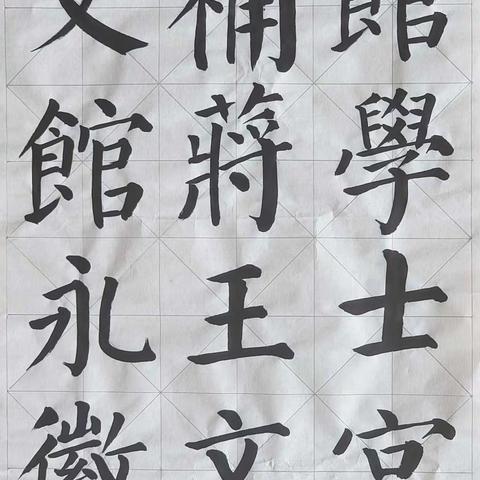 館學士
補蔣王文
文館永徽